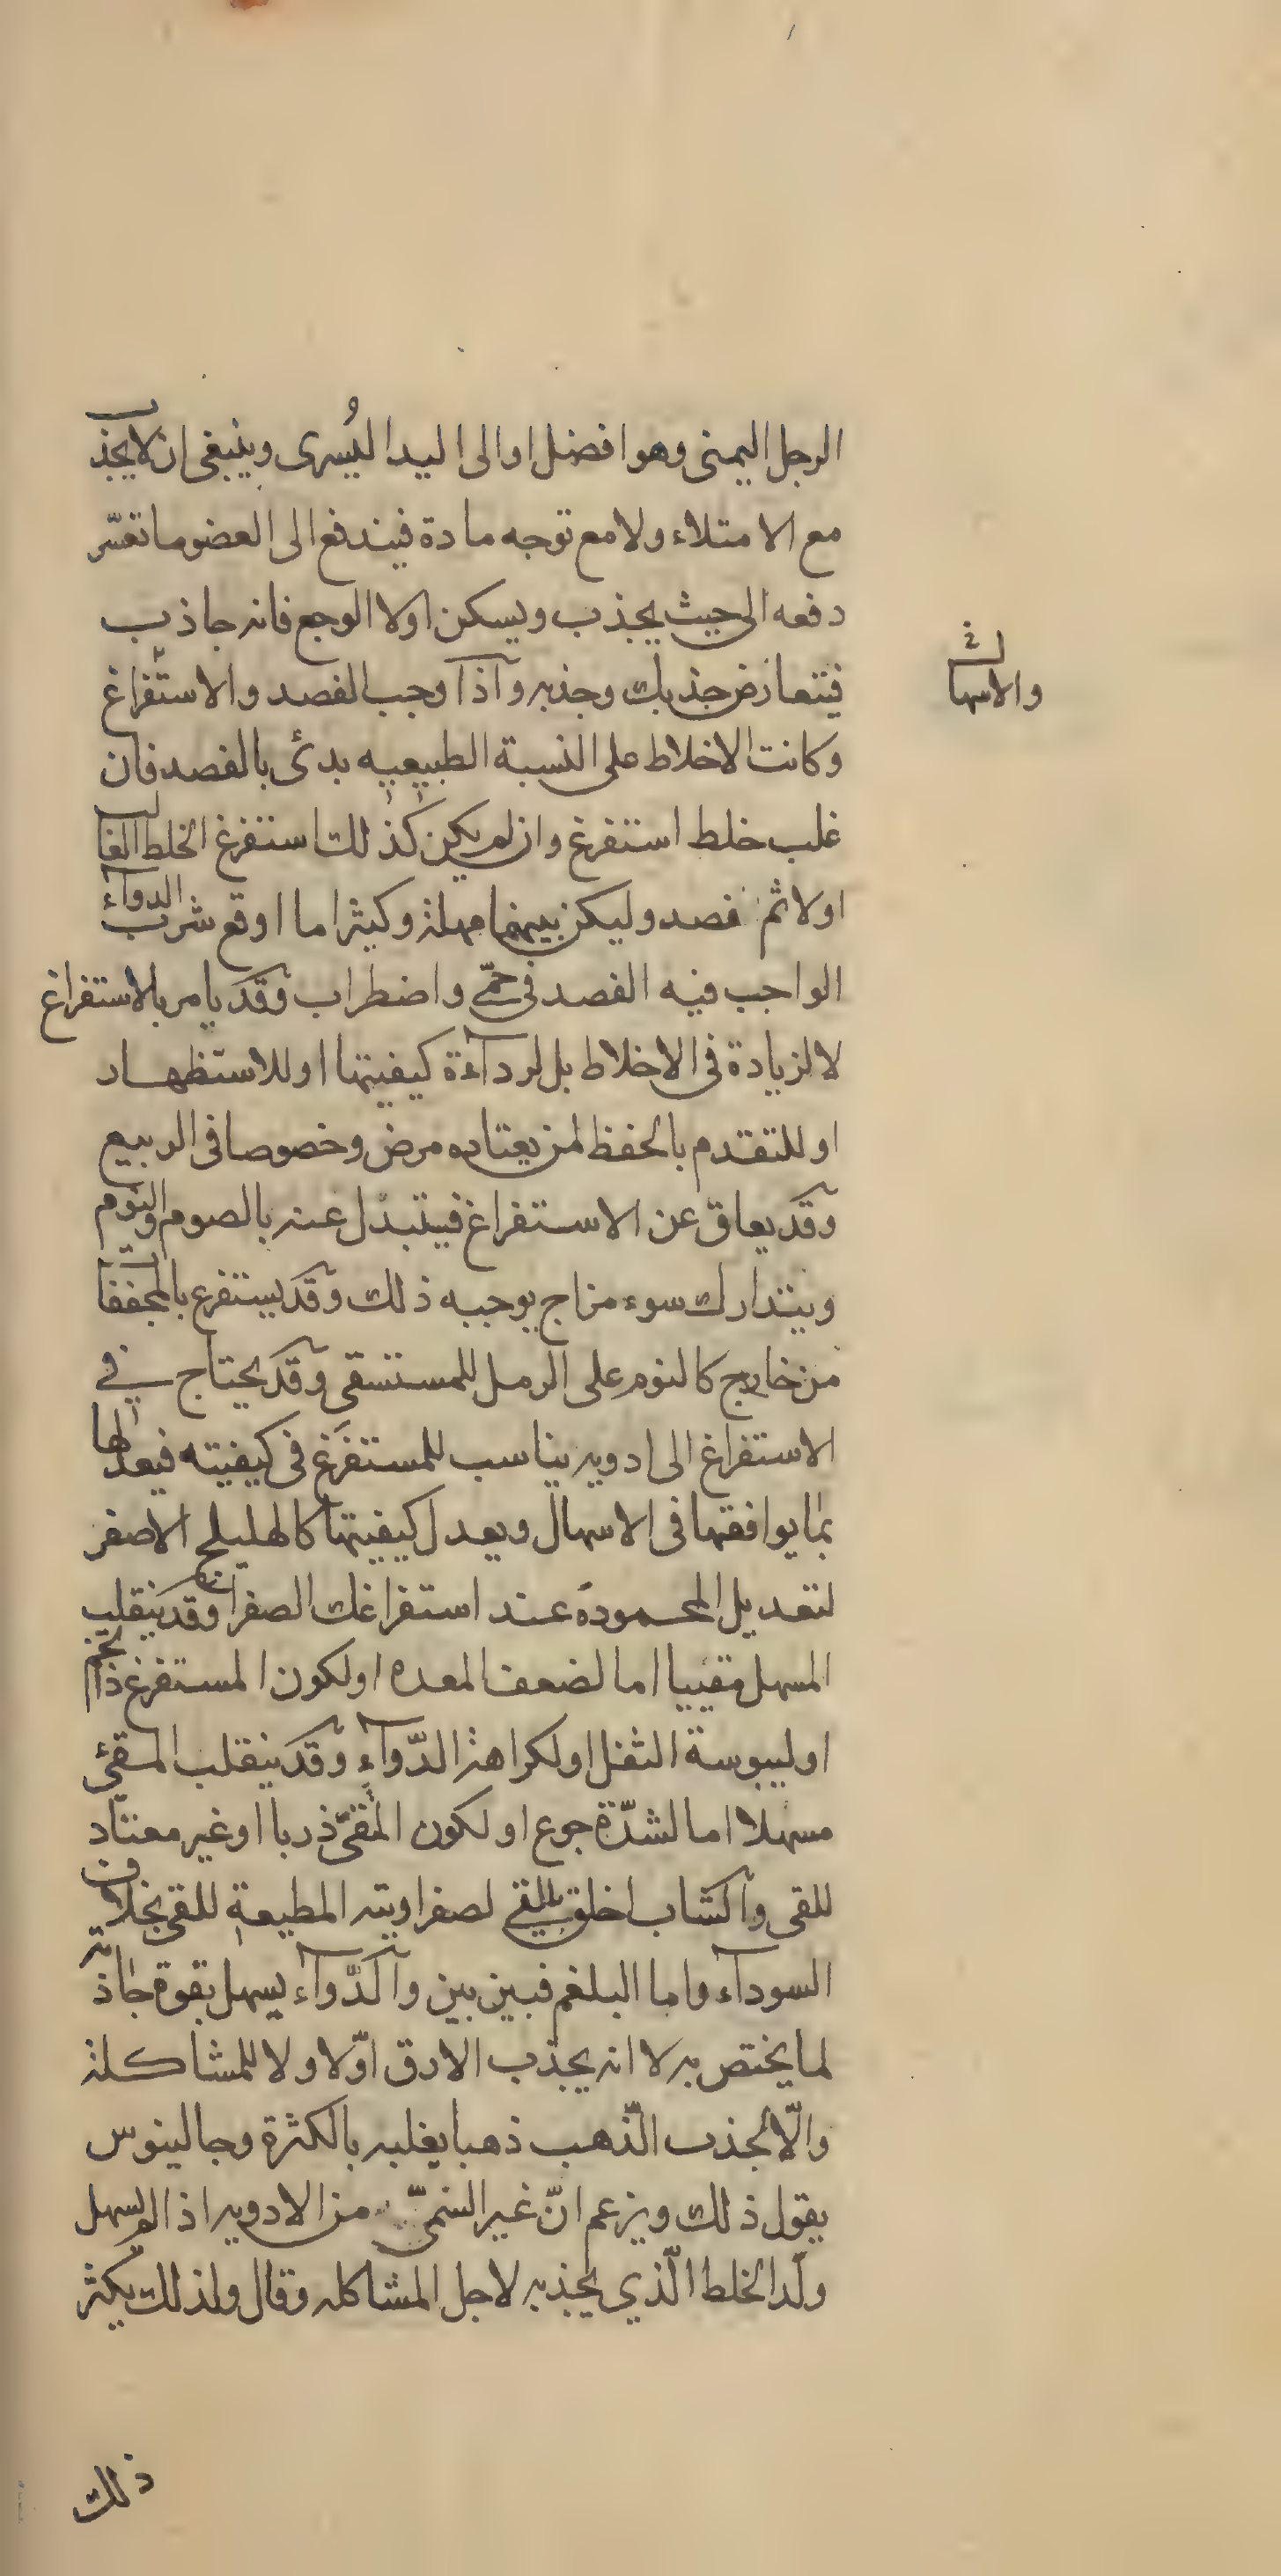 الرجل اليمنى وهو افضل او الى اليد اليُسرى وينبغى ان لا يجذب
مع الامتلاء ولا مع توجه مادة فيندفع الى العضو ما تعسّر
دفعه الى حيث يجذب ويسكن اولا الوجع فانه جاذب
فيتعارض جذبك وجذبه وآذا وجب الفصد والاستفراغ
والاسهال خ
وكانت الاخلاط على النسبة الطبيعيه بدئ بالفصد فان
غلب خلط استفرغ وان لم يكن كذلك استفرغ الخلط الغالب
اولا ثم فصد وليكن بينهما مهلة وكيثرا ما اوقع شرب الدوآء
الواجب فيه الفصد فى حمّى واضطراب وقد يامر بالاستفراغ
لا لزيادة فى الاخلاط بل لردآءة كيفيتها او للاستظهار
او للتقدم بالحفظ لمن يعتاده مرض وخصوصا فى الربيع
وقد يعاق عن الاستفراغ فيتبدل عنه بالصوم والنوم
ويتدارك سوء مزاج يوجبه ذلك وقد يستفرغ بالمجففات
من خارج كالنوم على الرمل للمستسقى وقد يحتاج فى
الاستفراغ الى ادويه يناسب للمستفرَغ فى كيفيته فيعدلها
بما يوافقها فى الاسهال ويعدل كيفيتها كالهليلج الاصفر
لتعديل المحمودة عند استفراغك الصفرا وقد ينقلب
المسهل مقييا اما لضعف المعده او لكون المستفرغ ذا تخم
او ليبوسة الثفل او لكراهة الدّوآءِ وقد ينقلب المقيّئ
مسهلا اما لشدّة جوع او لكون المُقيَّئ ذربا او غير معتاد
للقى وآلشاب اخلق بالقى لصفراويته المطيعة للقى بخلاف
السودآء واما البلغم فبين بين وآلدّوآء يسهل بقوة جاذبة
لما يختص به لا انه يجذب الارق اوّلا ولا للمشاكلة
والّا لجذب الذّهب ذهبا يغلبه بالكثرة وجالينوس
يقول ذلك ويزعم انّ غير السّمىّ من الادويه اذا لم يسهل
ولّد الخلط الّذي يجذبه لاجل المشاكله وقال ولذلك يكثر
ذلك